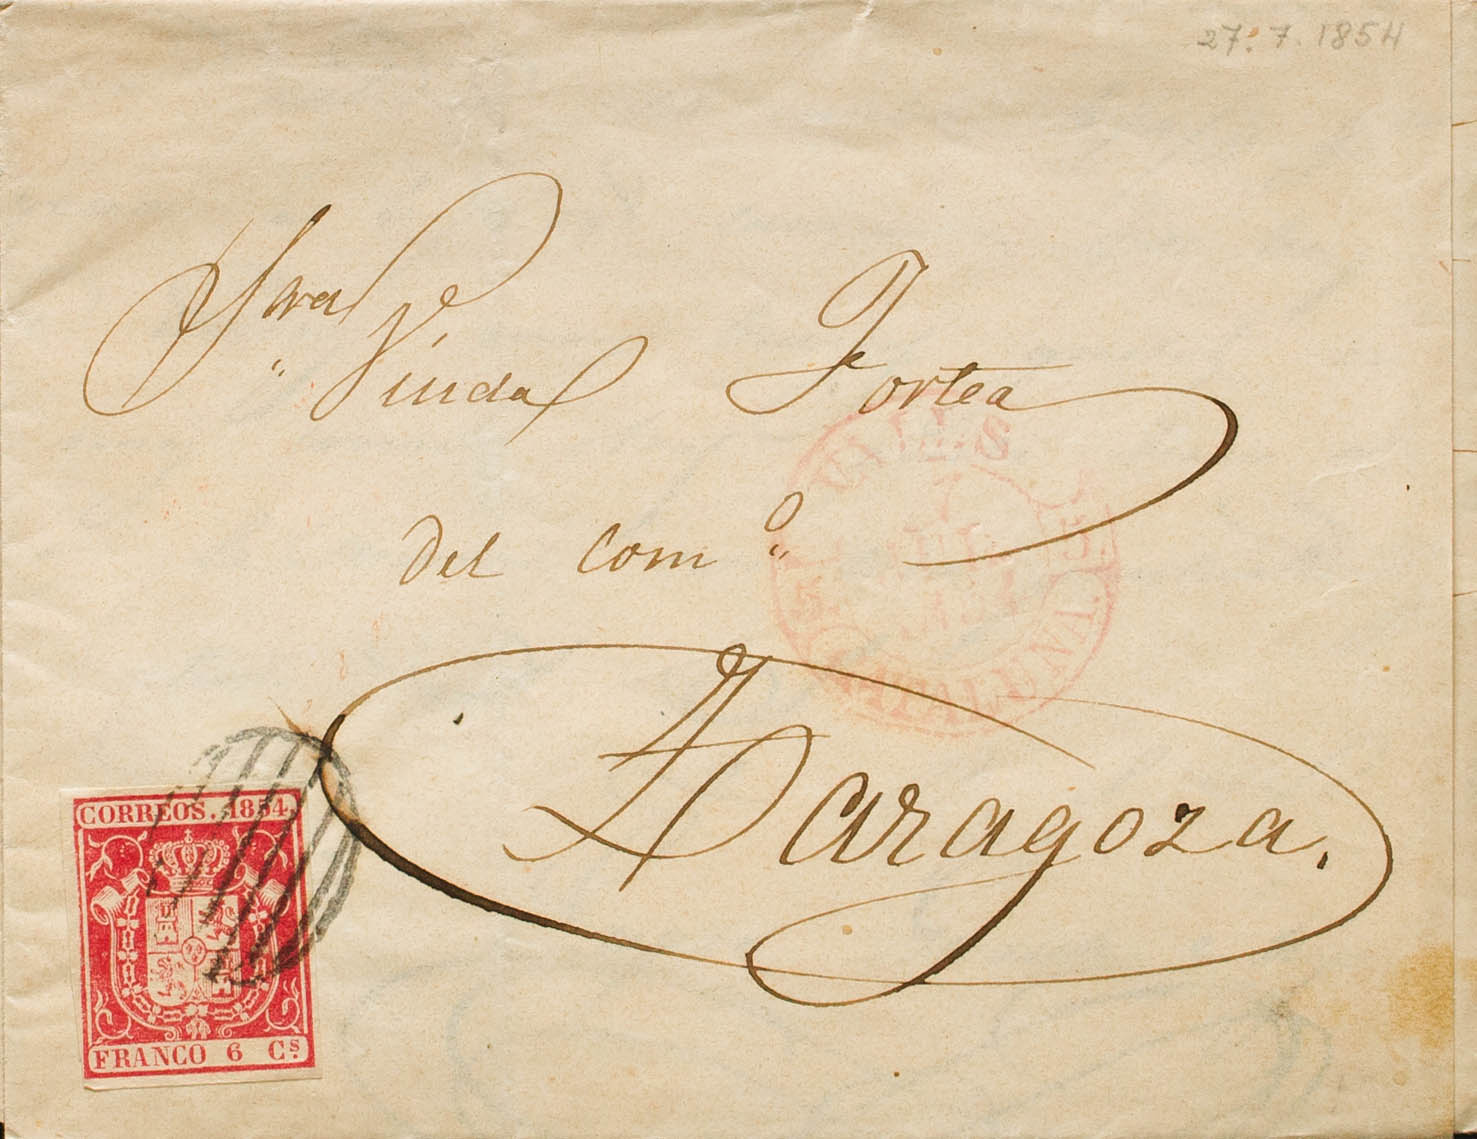 27.7.1854
Sra Viuda Fortea
del com.º
Zaragoza.
VALLS
JUL
1854
CATALUÑA.
CORREOS. 1854.
FRANCO 6 Cs.